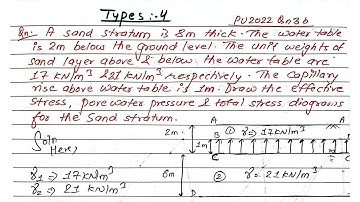 Types:-4
PU2022 Qn 3 b
Qn:- A sand stratum is 8m thick. The water table
is 2m below the ground level. The unit weights of
sand layer above & below the water table are
17 KN/m³ & 21 KN/m³ respectively. The capillary
rise above water table is 1m. Draw the effective
stress, pore water pressure & total stress diagrams
for the sand stratum.
Soln
Here,
γ₁ ⇒ 17 KN/m³
γ₂ ⇒ 21 KN/m³
A A
2m B ① γ⇒17KN/m³
1m
C C
6m ② γ=21KN/m³
D